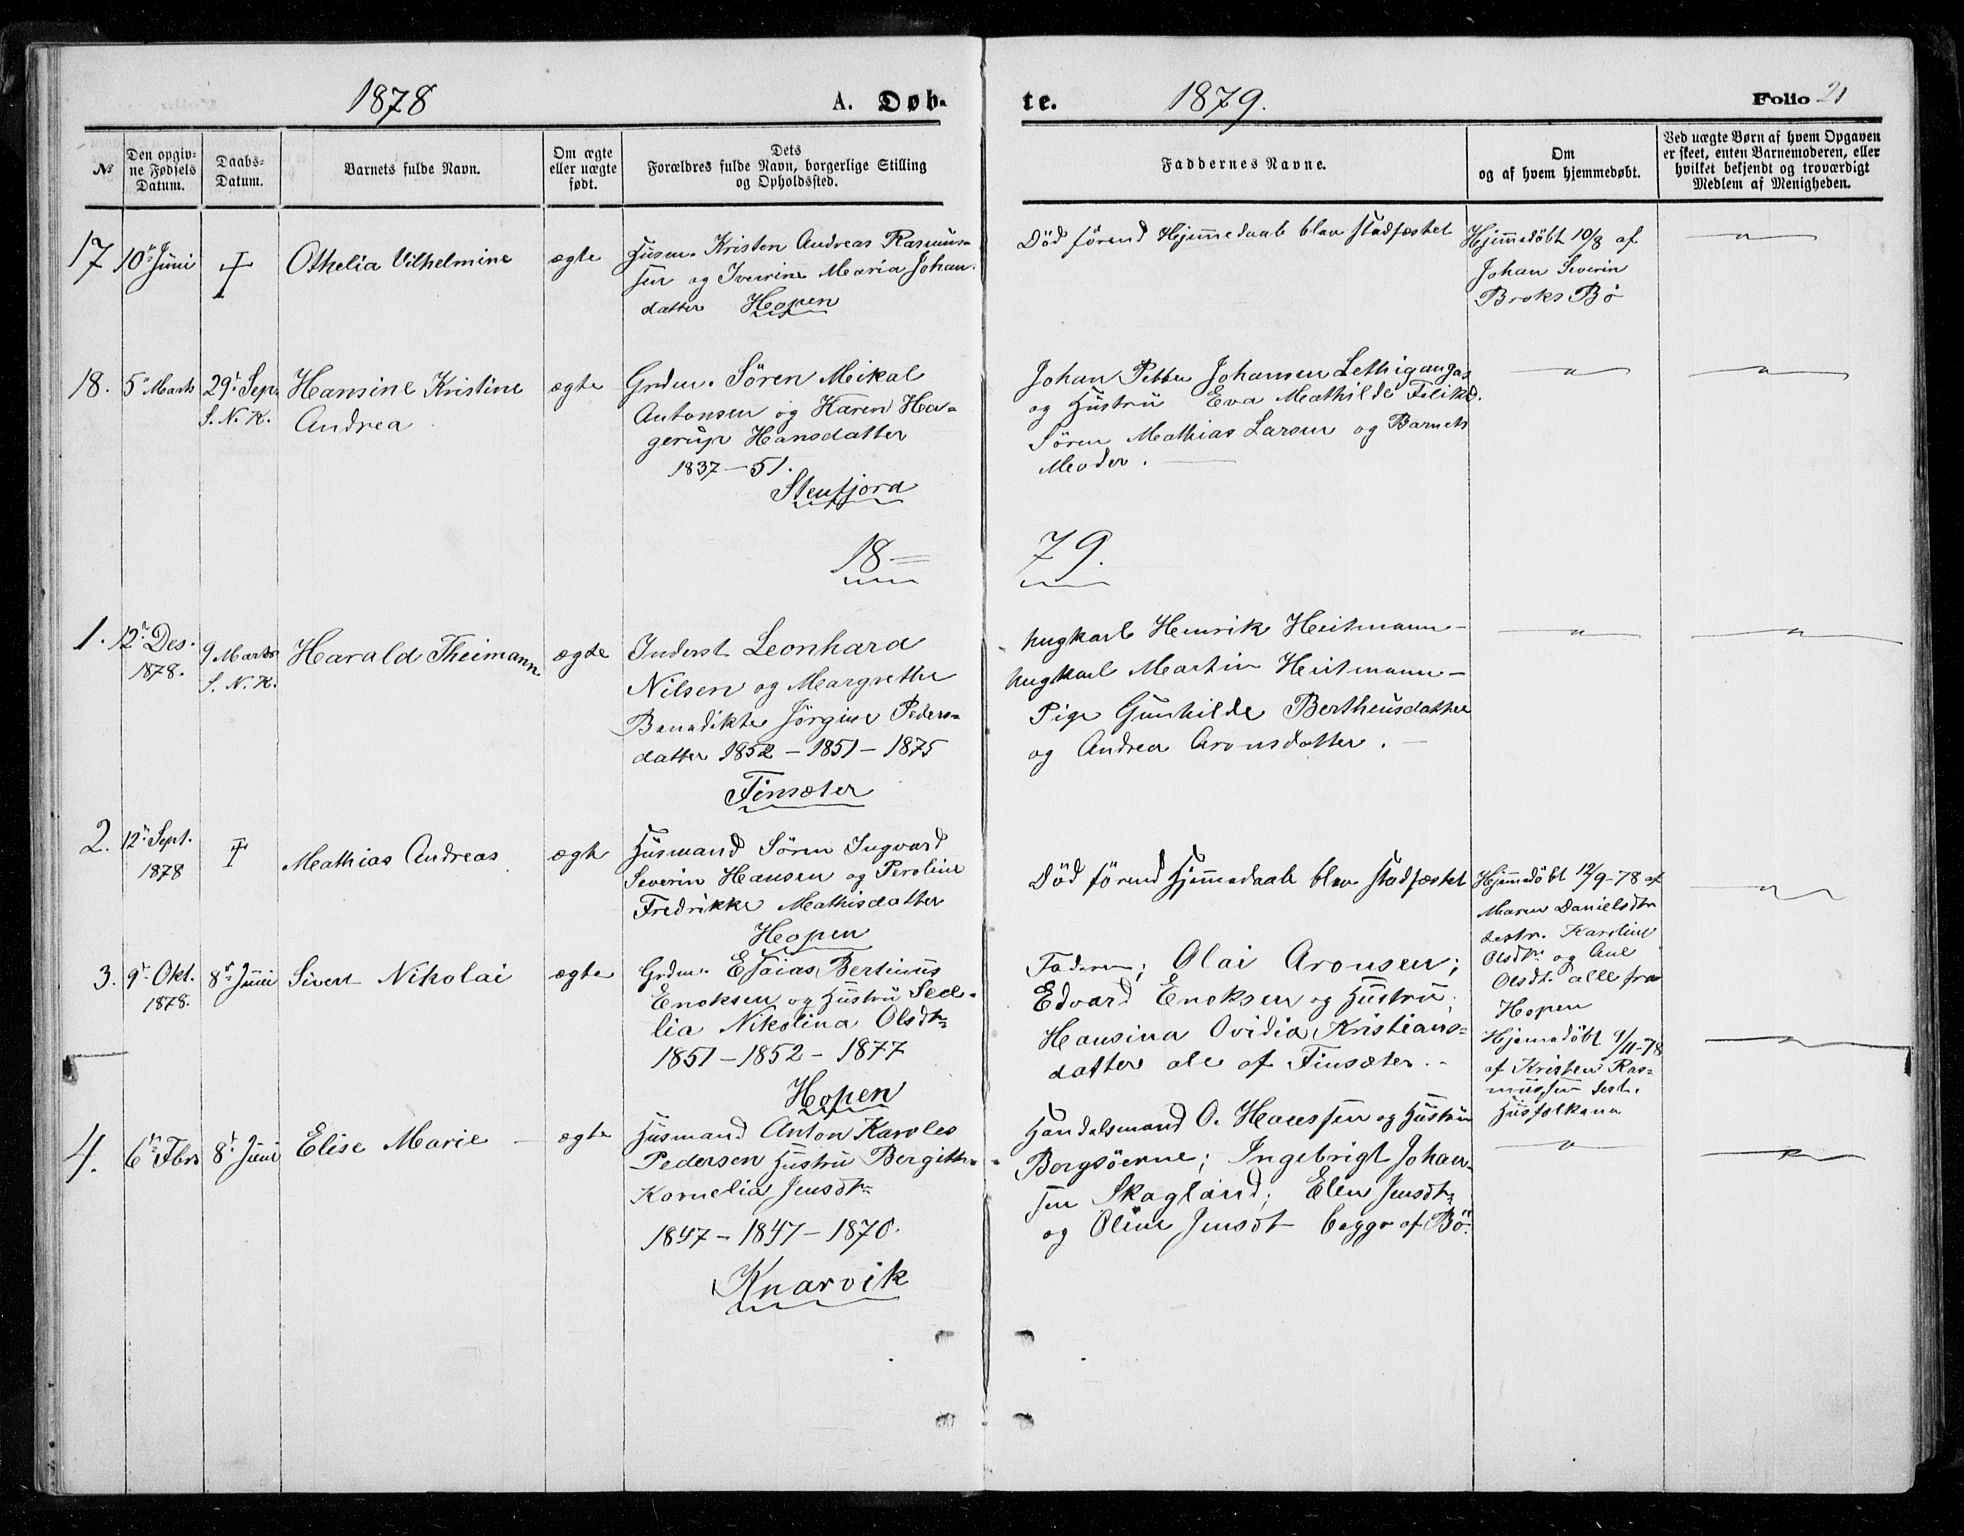 1878
A. Døb-
te.
1879.
Folio 21
No
Den opgiv-
ne Fødsels
Datum.
Daabs-
Datum.
Barnets fulde Navn.
Om ægte
eller uægte
født.
Dets
Forældres fulde Navn, borgerlige Stilling
og Opholdssted.
Faddernes Navne.
Om
og af hvem hjemmedøbt.
Ved uægte Børn af hvem Opgaven
er skeet, enten Barnemoderen, eller
hvilket bekjendt og troværdigt
Medlem af Menigheden.
17 10 Juni Othelia Vilhelmine ægte
Kristen Andreas Rasmus-
sen og Iverine Maria Johan-
datter Hopen
Død førend Hjemmedaab blev stadfæstet
Hjemmedøbt 10/8 af
Johan Severin
Broks Bø
18. 5 Marts 29 Sep.
S. N. K.
Hansine Kristine
Andrea
ægte
Grdm. Sören Meikal
Antonsen og Karen Ha-
gerup Hansdatter
1837 - 51.
Stenfjord
Johan Petter Johansen
og Hustru Eva Mathilde
Sören Mathias Larsen og Barnets
Moder.
18
79.
1. 12 Des.
1878.
9 Marts
S. N. K.
Harald Theimann
ægte
Inderst Leonhard
Nilsen og Margrethe
Benedikte Jørgine Peders-
datter 1852 - 1851 - 1875
Finsæter
Ungkarl Henrik Heitmann -
Ungkarl Martin Heitmann -
Pige Gunhilde Bertheusdatter
og Andrea Aronsdatter.
2. 12 Sept.
1878
Mathias Andreas
ægte
Husmand Sören Ingvard
Severin Hansen og Peroline
Fredrikke Mathisdatter
Hopen
Død førend Hjemmedaab blev stadfæstet
Hjemmedøbt 12/9-78 af
Maren Danielsdtr
testr. Karoline
Olsdtr og
Olsdt alle fra
Hopen
3. 9 Okt.
1878.
8 Juni
Sivert Nikolai
ægte
Grdm. Esaias Bertinus
Enoksen og Hustru Seel-
lia Nikolina Olsdtr
1851 - 1852 - 1877
Hopen
Faderen; Olai Aronsen;
Edvard Enoksen og Hustru;
Hansina Ovidia Kristians-
datter ale af Finsæter.
Hjemmedøbt 9/11-78
af Kristen Ras-
mussen test.
Husfolkene
4. 6 Fbr 8 Juni
Elise Marie -
ægte
Husmand Anton Karoles
Pedersen Hustru Bergitte
Kornelia Jensdtr
1847 - 1847 - 1870.
Knarvik
Handelsmand O. Hanssen og Hustru
Borgsöerne; Ingebrigt Johan-
sen Skagland; Elen Jensdt
og Oline Jensdt begge af Bø.